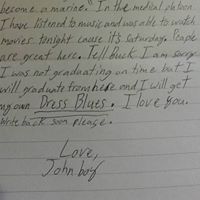 become a marine." In the medical platoon
I have listened to music and was able to watch
movies tonight cause it's saturday. People
are great here. Tell Buck I am sorry
I was not graduating on time but I
will graduate from here and I will get
my own Dress Blues. I love you.
Write back soon please.
Love,
John boy